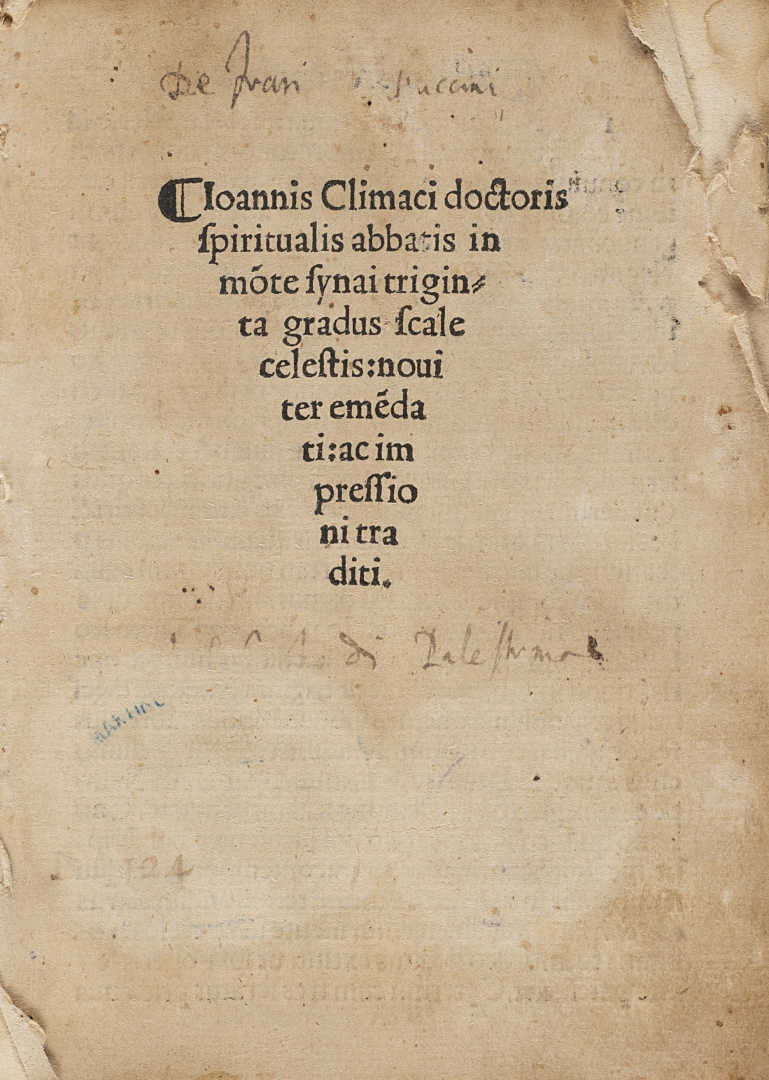 De frari
¶Ioannis Climaci doctoris
ſpiritualis abbatis in
mõte ſynai trigin⸗
ta gradus ſcale
celeſtis:noui
ter emẽda
ti:ac im
preſſio
ni tra
diti.
di Paleſtrina
124